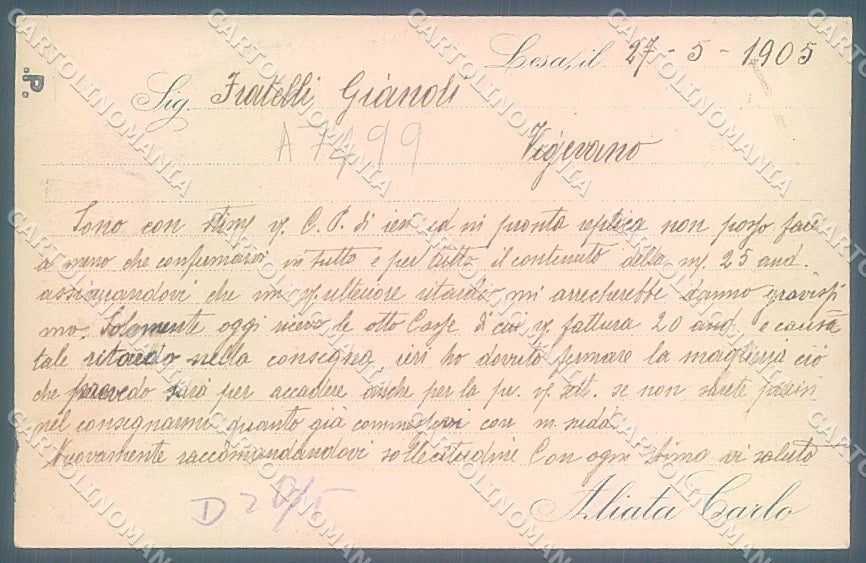 .P.
Lesa, il 27-5-1905
Sig. Fratelli Gianoli
A7499
Vigevano
Sono con stim. v. C. P. di ieri ed in pronta replica non posso fare
a meno che confermarvi in tutto e per tutto il contenuto della m/. 25 and.
assicurandovi che un v. ulteriore ritardo mi arrecherebbe danno gravissi
mo. Solamente oggi ricevo le otto Casse di cui v. fattura 20 and. e causa
tale ritardo nella consegna, ieri ho dovuto fermare la maglieria ciò
che prevedo sarà per accadere anche per la pr. v. sett. se non sarete
nel consegnarmi quanto già commessovi con m.
Nuovamente raccomandandovi sollecitudine Con ogni stima vi saluto
Aliata Carlo
D 20/5
CARTOLINOMANIA